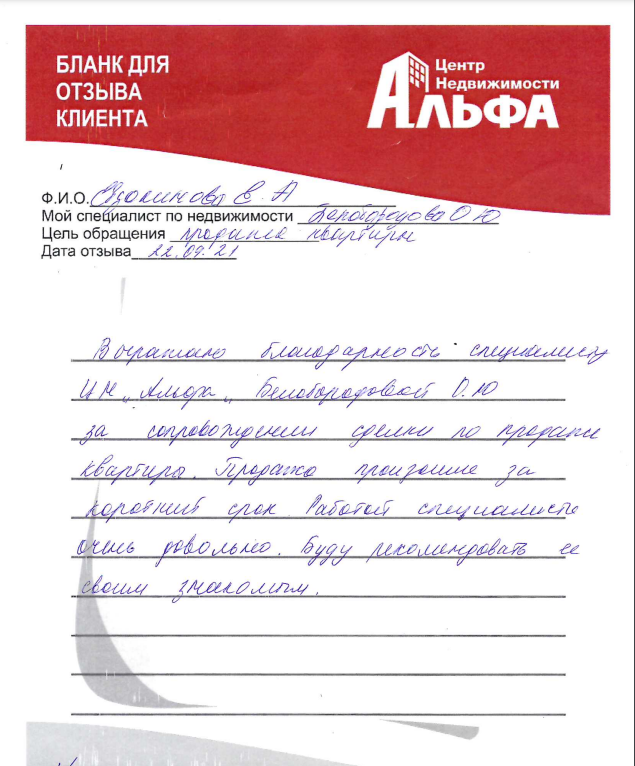 БЛАНК ДЛЯ
ОТЗЫВА
КЛИЕНТА
Центр
Недвижимости
АЛЬФА
Ф.И.О. Евдокимова Е. А
Мой специалист по недвижимости Белобородова О Ю
Цель обращения продажа квартиры
Дата отзыва 22.09.21
Выражаю благодарность специалисту
ЦН "Альфа" Белобородовой О.Ю
за сопровождении сделки по продаже
квартира. Продажа произошло за
короткий срок. Работой специалиста
очень довольно. Буду рекомендовать ее
своим знакомым.